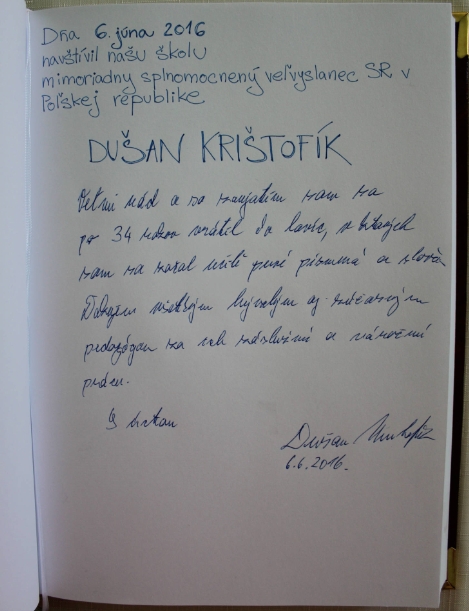 Dňa 6. júna 2016
navštívil našu školu
mimoriadny splnomocnený veľvyslanec SR v
Poľskej republike
DUŠAN KRIŠTOFÍK
Veľmi rád a so zaujatím som sa
po 34 rokoch vrátil do lavíc, v ktorých
som sa začal učiť prvé písmená a slová.
Ďakujem všetkým bývalým aj súčasným
pedagógom za ich záslužnú a náročnú
prácu.
S úctou
Dušan Krištofík
6.6.2016.